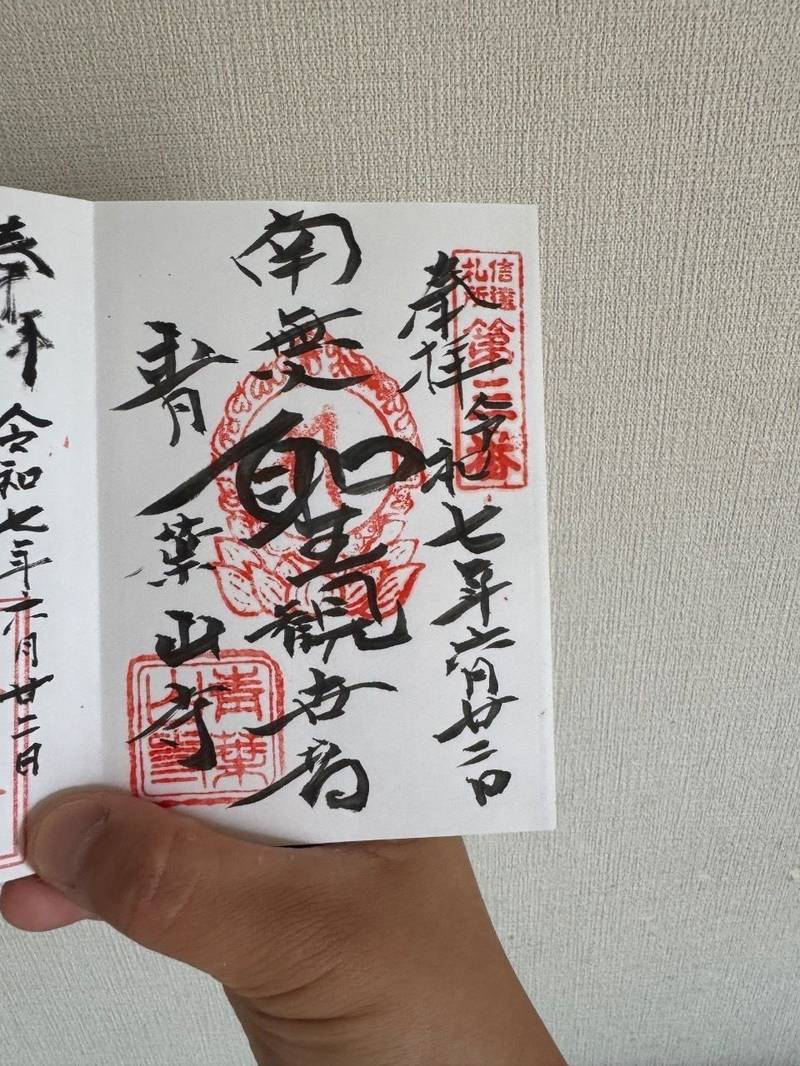 奉拝 令和七年六月廿二日
信達
札所
第 番
南無聖観世音
青葉山寺
青葉
山
令和七年六月廿二日